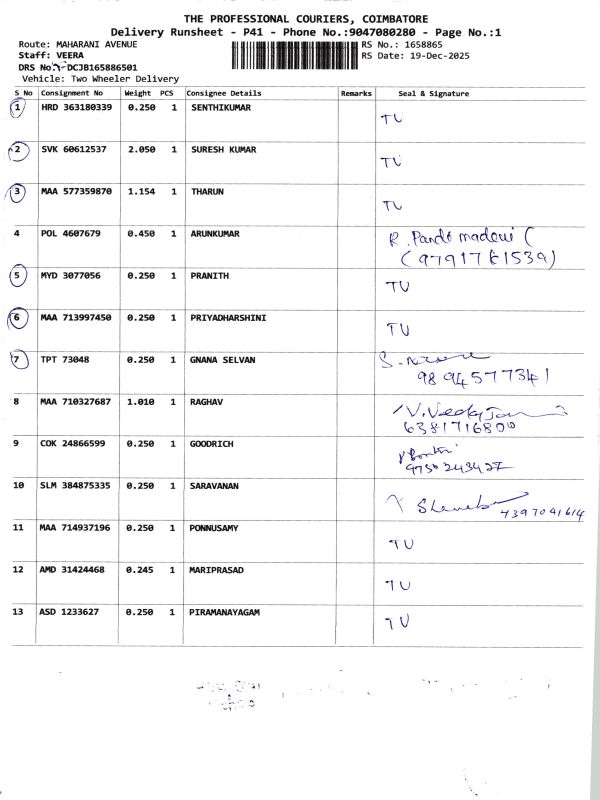 THE PROFESSIONAL COURIERS, COIMBATORE
Delivery Runsheet - P41 - Phone No.:9047080280 - Page No.:1
Route: MAHARANI AVENUE RS No.: 1658865
Staff: VEERA RS Date: 19-Dec-2025
DRS No.:-DCJB165886501
Vehicle: Two Wheeler Delivery
S No Consignment No Weight PCS Consignee Details Remarks Seal & Signature
1 HRD 363180339 0.250 1 SENTHIKUMAR TU
2 SVK 60612537 2.050 1 SURESH KUMAR TU
3 MAA 577359870 1.154 1 THARUN TU
4 POL 4607679 0.450 1 ARUNKUMAR R.
5 MYD 3077056 0.250 1 PRANITH TU
6 MAA 713997450 0.250 1 PRIYADHARSHINI TU
7 TPT 73048 0.250 1 GNANA SELVAN S.
9894577341
8 MAA 710327687 1.010 1 RAGHAV
6381716800
9 COK 24866599 0.250 1 GOODRICH
9750243427
10 SLM 384875335 0.250 1 SARAVANAN
11 MAA 714937196 0.250 1 PONNUSAMY TU
12 AMD 31424468 0.245 1 MARIPRASAD TU
13 ASD 1233627 0.250 1 PIRAMANAYAGAM TU